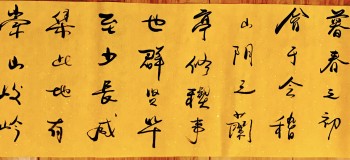 暮春之初
会于会稽
山阴之蘭
亭修禊事
也群贤畢
至少长咸
集此地有
崇山峻岭